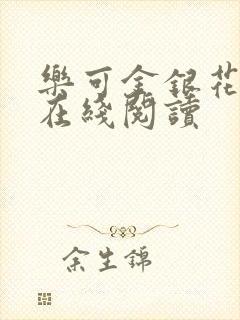 樂可金銀花
在綫閱讀
余生錦